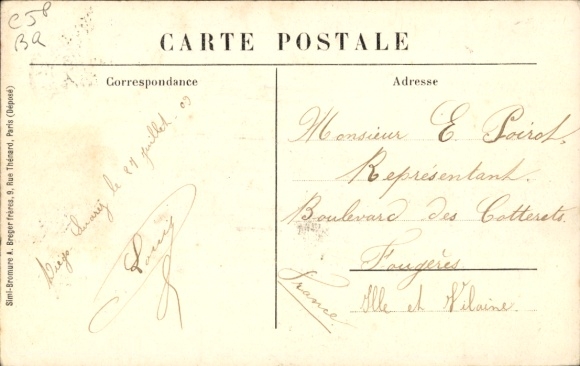 C58
Ba
CARTE POSTALE
Correspondance
Adresse
Simi-Bromure A. Breger frères, 9, Rue Thénard, Paris (Déposé)
Diego Suarez le 21 juillet 09
Louis
Monsieur E. Poirot.
Représentant.
Boulevard des Cotterets.
Fougères
Ille et Vilaine.
France.